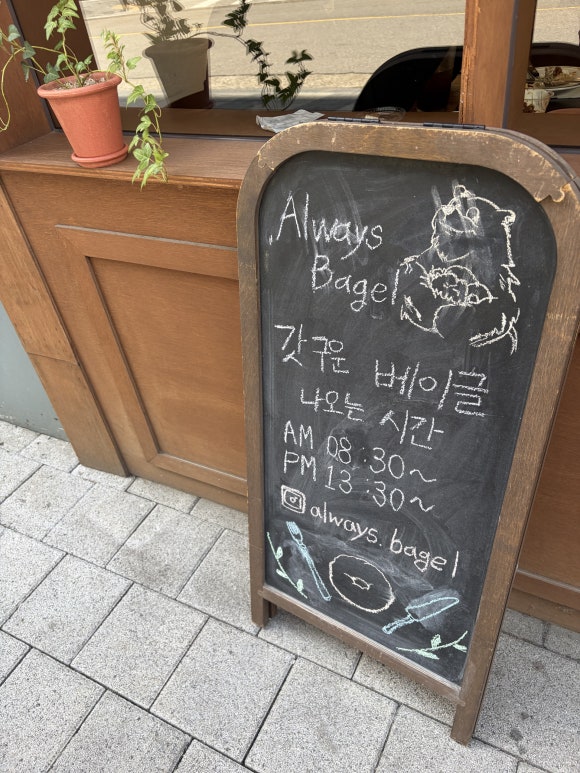 Always
Bagel
갓 구운 베이글
나오는 시간
AM 08:30~
PM 13:30~
always.bagel